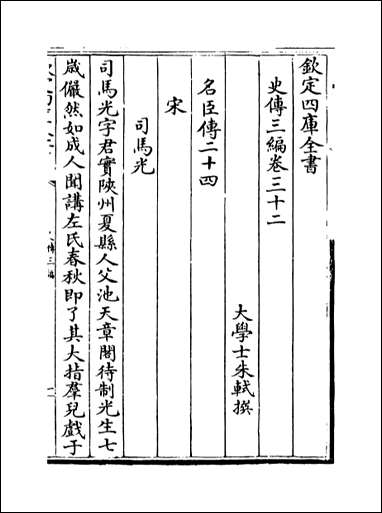 欽定四庫全書
史傳三編卷三十二
大學士朱軾撰
名臣傳二十四
宋
司馬光
司馬光字君實陝州夏縣人父池天章閣待制光生七
歲儼然如成人聞講左氏春秋即了其大指羣兒戲于